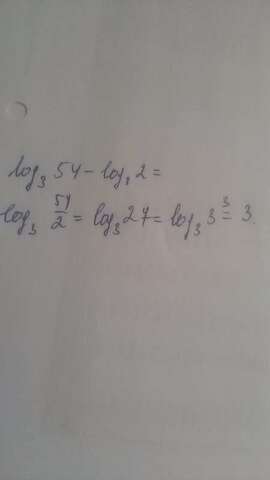 log₃ 54 - log₃ 2 =
log₃ 54/2 = log₃ 27 = log₃ 3³ = 3.